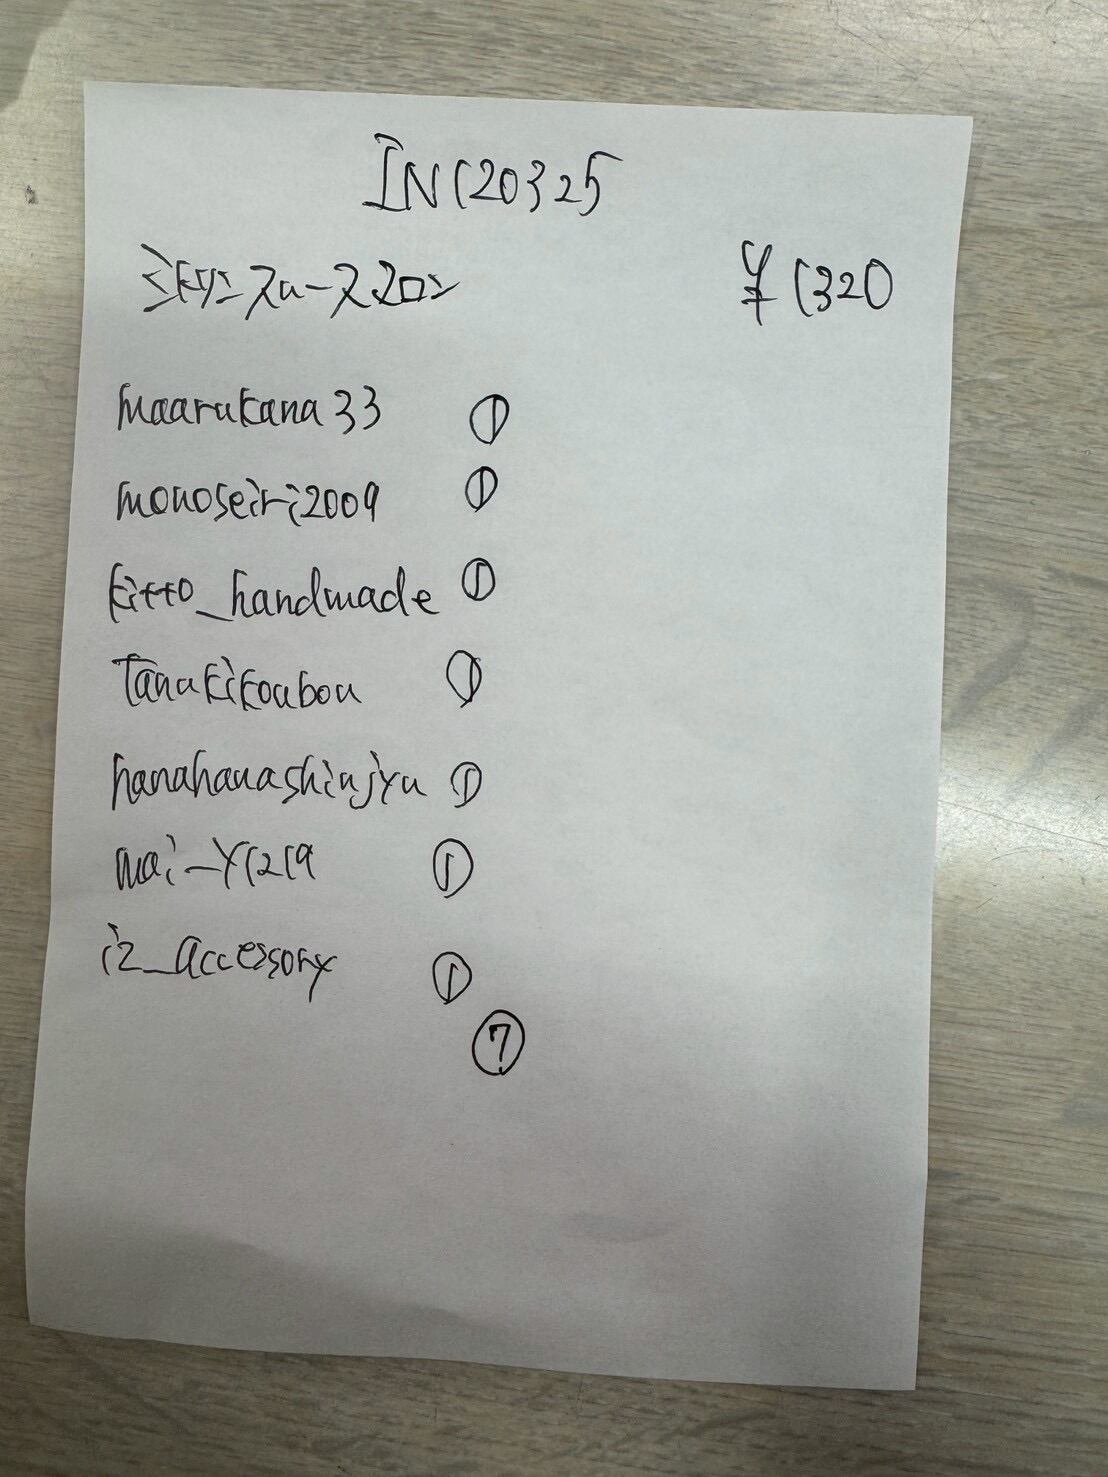 IN120325
ミドリシスルースマロン ¥1320
maarukana33 ①
monoseiri2009 ①
kitto_handmade ①
Tanukikoubou ①
hanahanashinjyu ①
mai-y1219 ①
iz_accessory ①
⑦